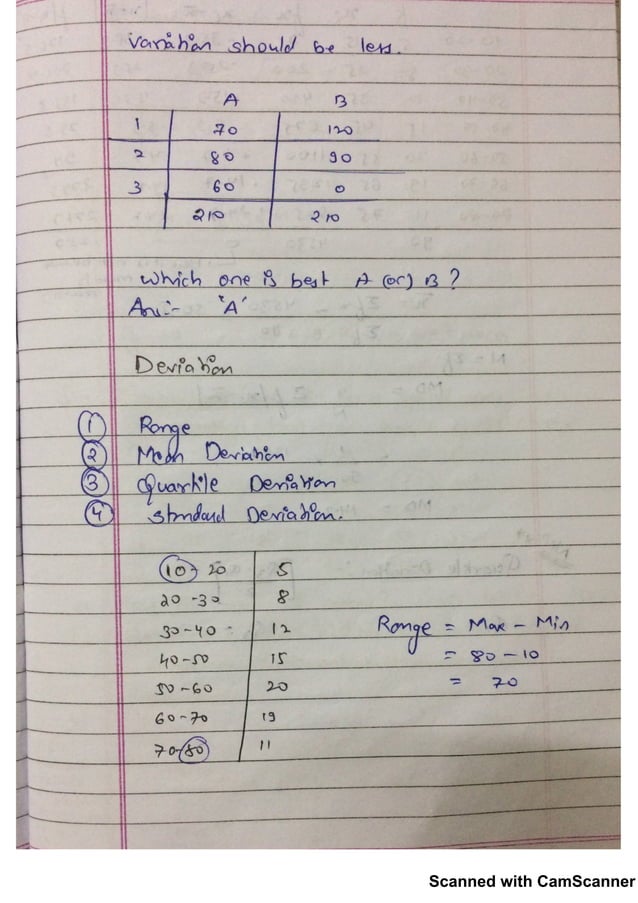 variation should be less.
A B
1 70 120
2 80 90
3 60 0
210 210
which one is best A (or) B?
Ans:- 'A'
Deviation
1 Range
2 Mean Deviation
3 Quartile Deviation
4 Standard Deviation.
10-20 5
20-30 8
30-40 12
40-50 15
50-60 20
60-70 19
70-80 11
Range = Max - Min
= 80-10
= 70
Scanned with CamScanner